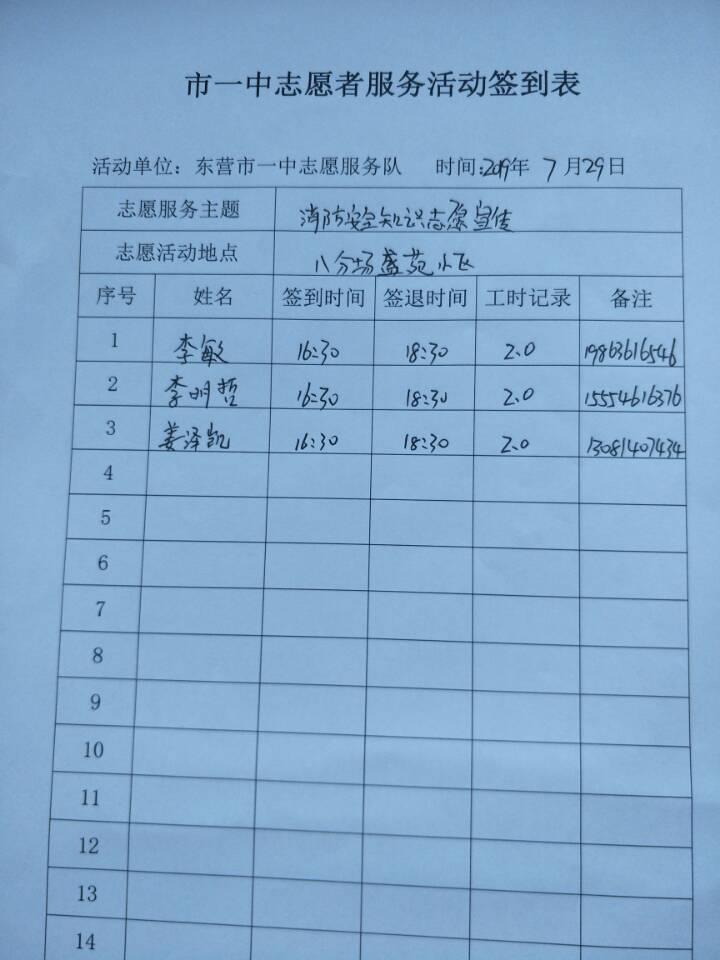 市一中志愿者服务活动签到表
活动单位：东营市一中志愿服务队 时间:2019年 7 月29日
志愿服务主题 消防安全知识志愿宣传
志愿活动地点 八分场盛苑小区
序号 姓名 签到时间 签退时间 工时记录 备注
1 李敏 16:30 18:30 2.0 19863616546
2 李明哲 16:30 18:30 2.0 15554616376
3 姜泽凯 16:30 18:30 2.0 13081407434
4
5
6
7
8
9
10
11
12
13
14